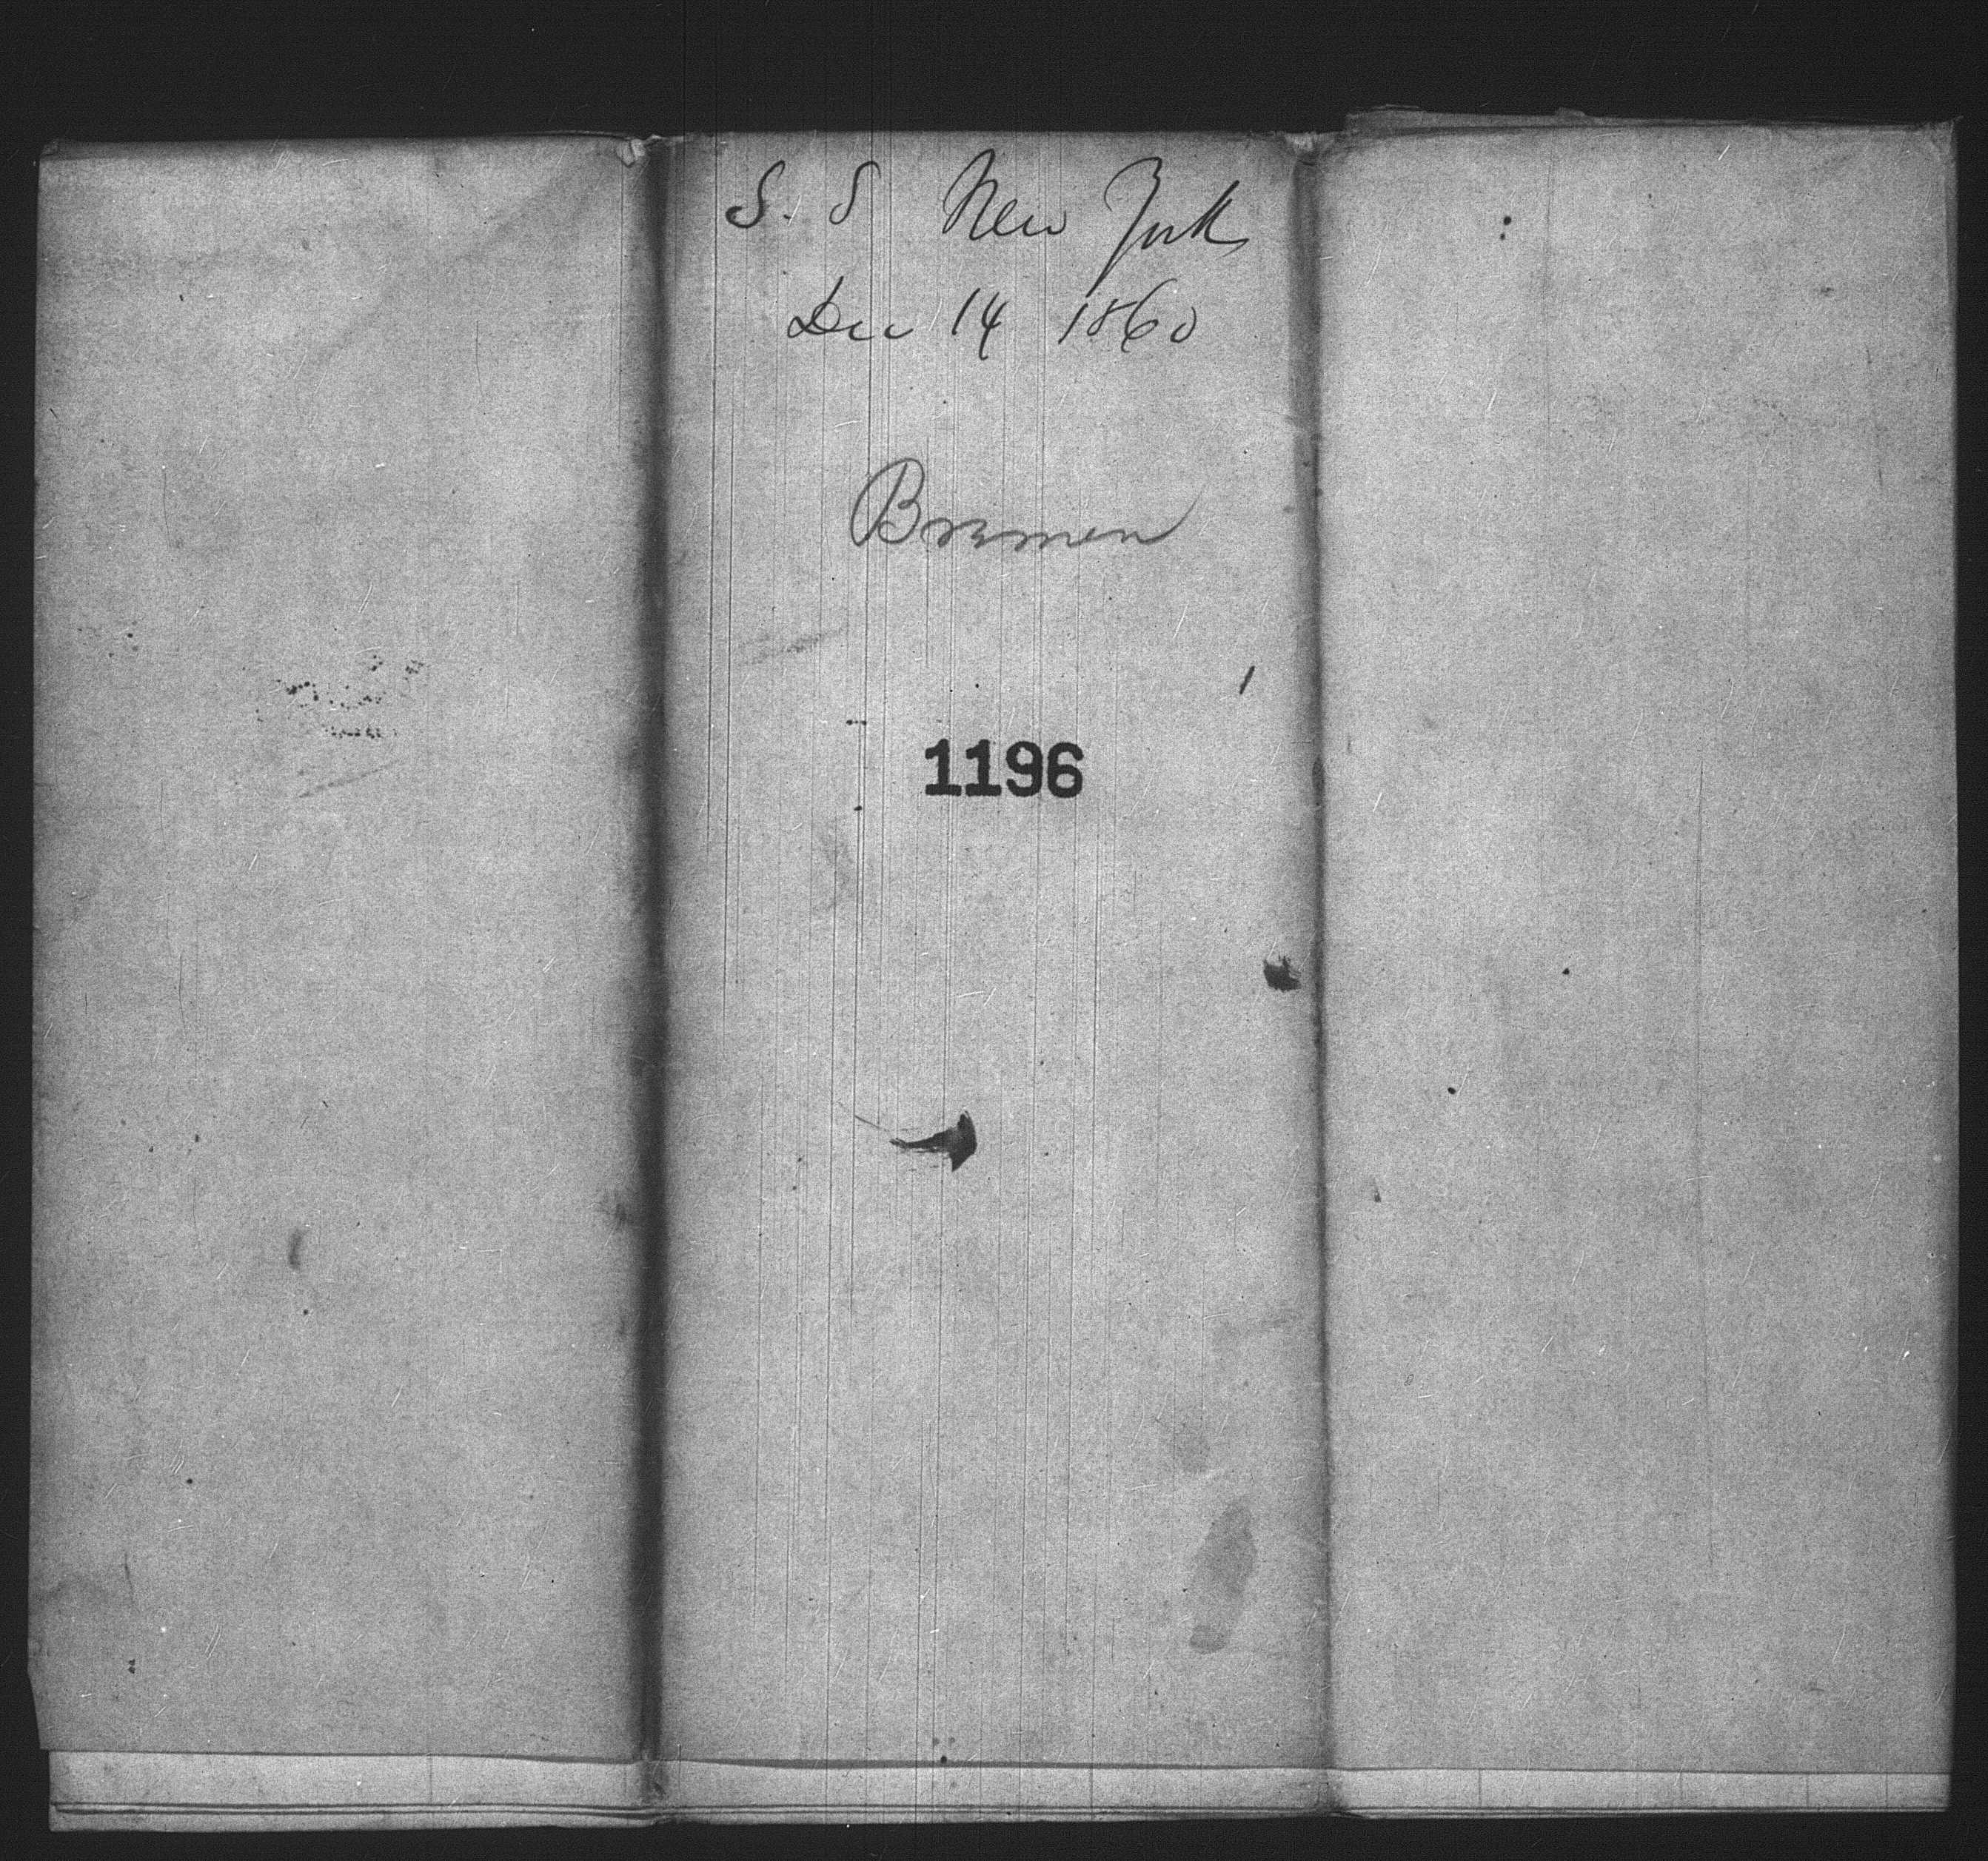 S. S New York
Dec 14 1860
Bremen
1196